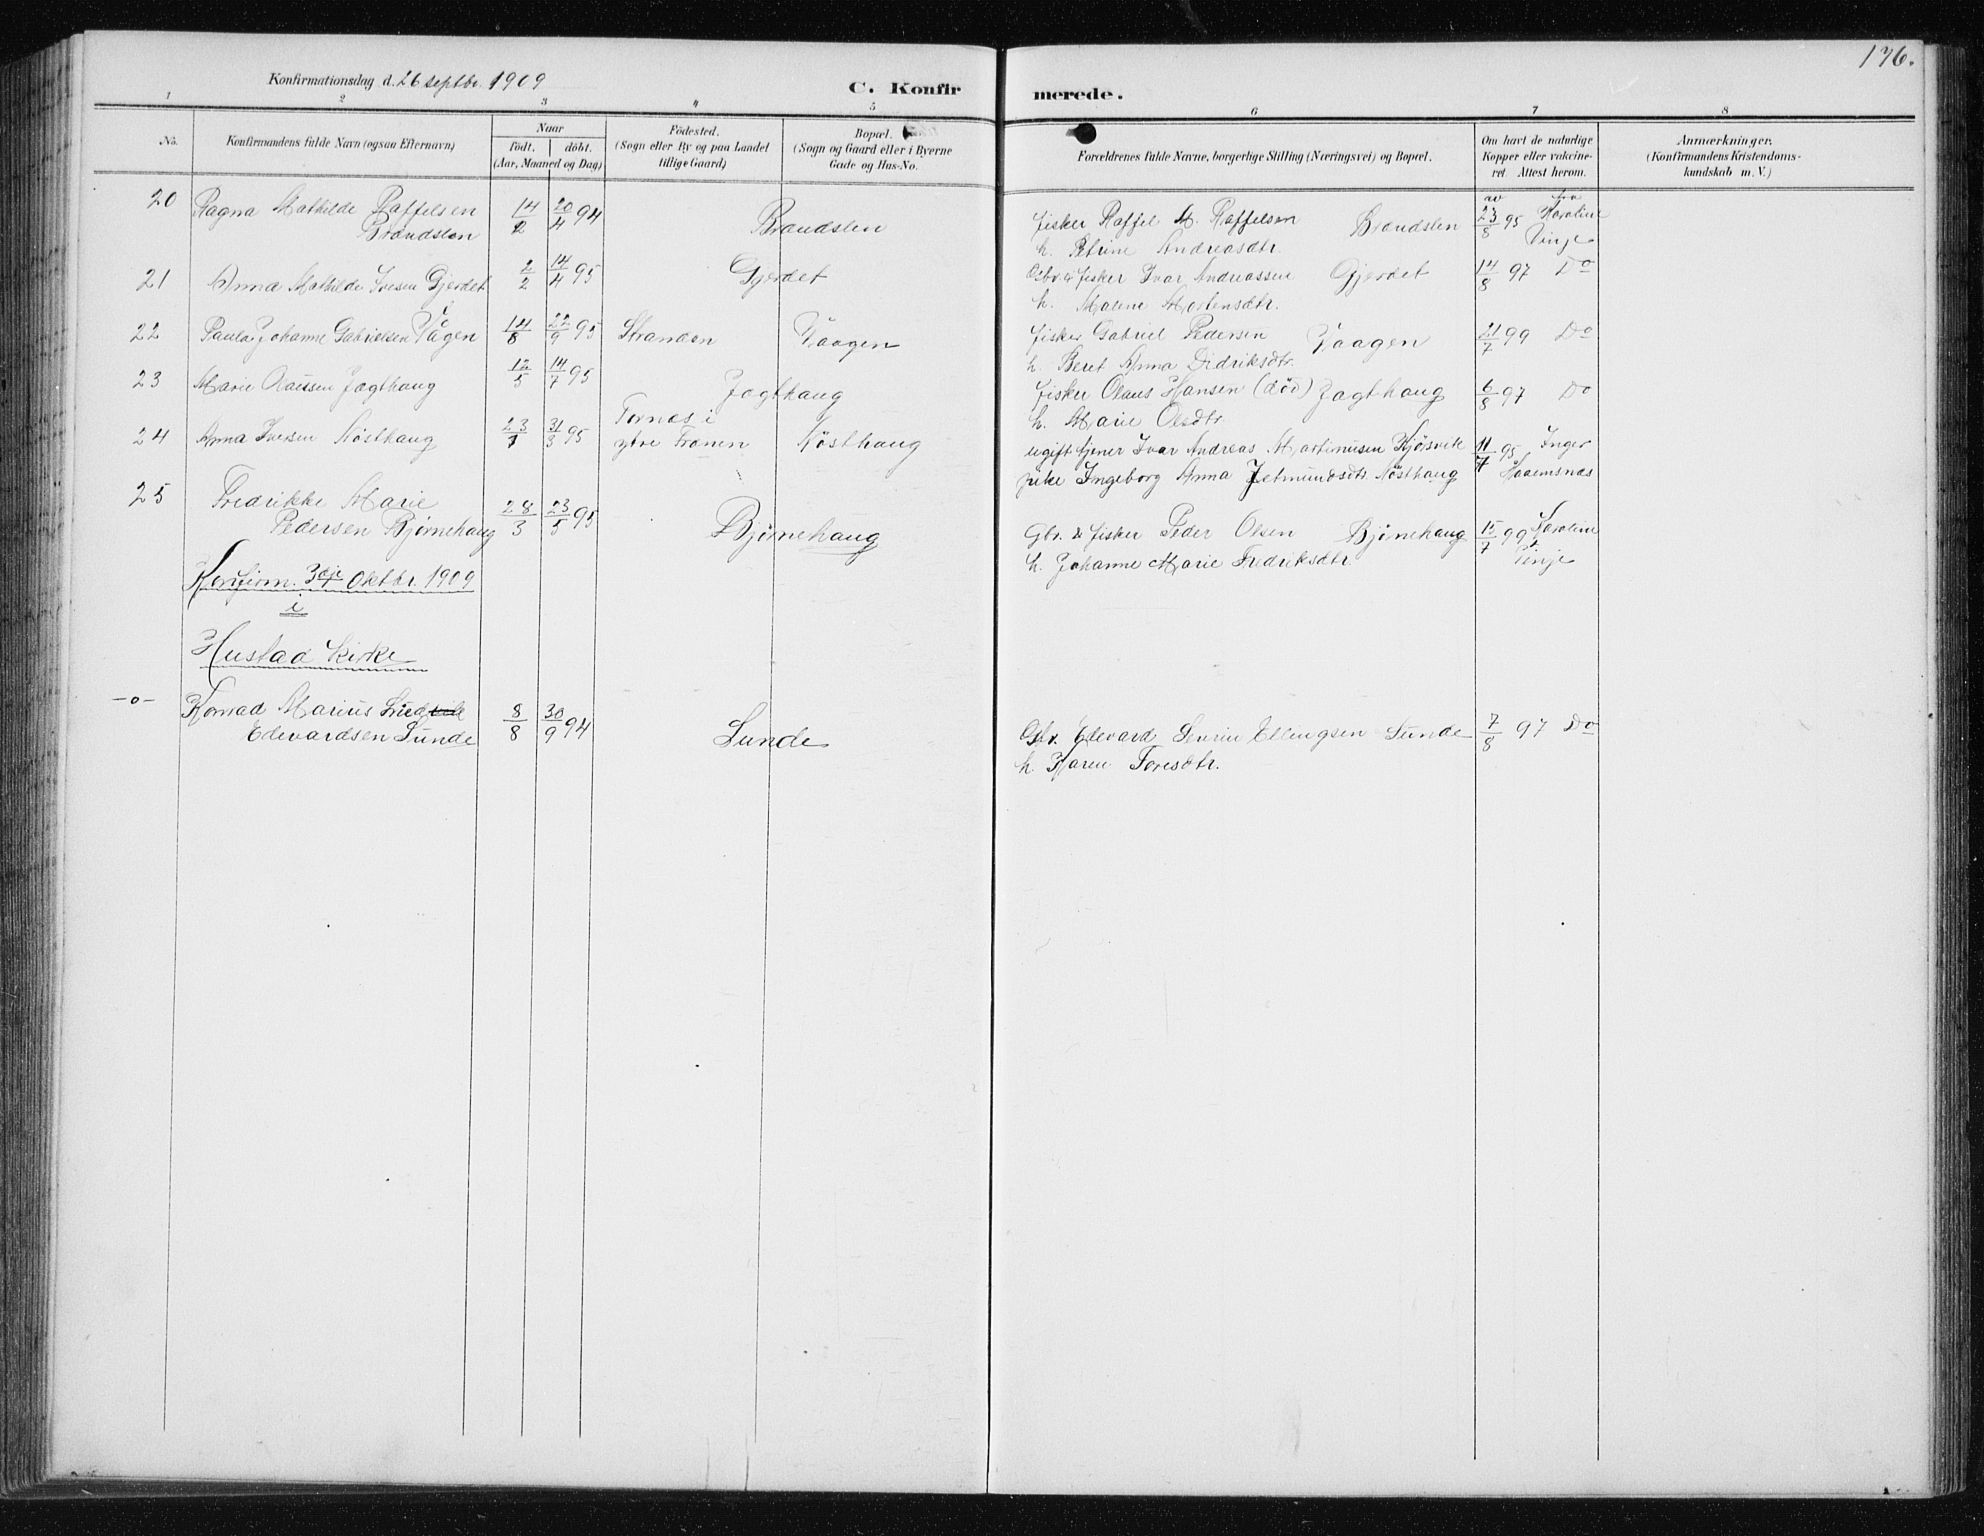 176.
Konfirmationsdag d. 26 septbr. 1909
C. Konfirmerede.
1 2 3 4 5 6 7 8
No.
Konfirmandens fulde Navn (ogsaa Efternavn)
Naar
födt. | döbt.
(Aar, Maaned og Dag)
Födested.
(Sogn eller By og paa Landet
tillige Gaard)
Bopæl.
(Sogn og Gaard eller i Byerne
Gade og Hus-No.
Forældrenes fulde Navne, borgerlige Stilling (Næringsvei) og Bopæl.
Om havt de naturlige
Kopper eller vakcine-
ret. Attest herom.
Anmærkninger.
(Konfirmandens Kristendoms-
kundskab m. V.)
20 Ragna Mathilde Raffelsen 14/2 20/4 94 Brandsten fisker Raffel M. Raffelsen Brandsten av 23/8 95 fra Karoline
Brandsten h. Petrine Andreasdtr. Vinje
21 Anna Mathilde Ivesen Gjerdet 2/2 14/4 95 Gjerdet Gbr. & fisker Ivar Andreassen Gjerdet 14/8 97 Do
h. Malene Mortensdtr.
22 Paula Johanne Gabrielsen Vågen 14/8 22/9 95 Stranden Vaagen fisker Gabriel Pedersen Vaagen 21/7 99 Do
h. Beret Anna Didriksdtr.
23 Marie Olausen Jagthaug 12/5 14/7 95 Jagthaug fisker Olaus Hansen (död) Jagthaug 6/8 97 Do
h. Marie Olsdtr.
24 Anna Iversen Nösthaug 23/1 31/3 95 Tornes i
ytre Frænen Nösthaug ugift tjener Ivar Andreas Martinusen Kjørsvik 11/7 95 Inger
pike Ingeborg Anna Jetmundsdtr. Nösthaug Haaemsnæs
25 Fredrikke Marie
Pedersen Bjørnehaug 28/3 23/5 95 Bjørnehaug Gbr. & fisker Peder Olsen Bjørnehaug 15/7 99 Karoline
h. Johanne Marie Fredriksdtr. Vinje
Konfirm. 3dje Oktbr. 1909
i
Hustad Kirke
-o- Konrad Marius
Edevardsen Sunde 8/8 30/9 94 Sunde Gbr. Edevard Severin Ellingsen Sunde 7/8 97 Do
h. Karen Toresdtr.